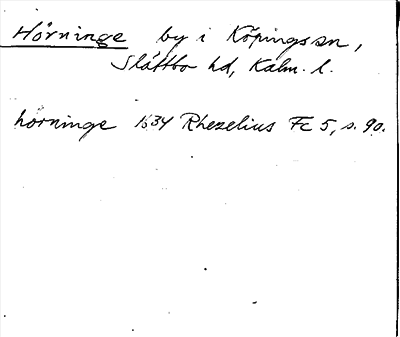 Hörninge by i Köpings sn,
Slättbo hd, Kalm. l.
hörninge 1634 Rhezelius Fc 5, s. 90.